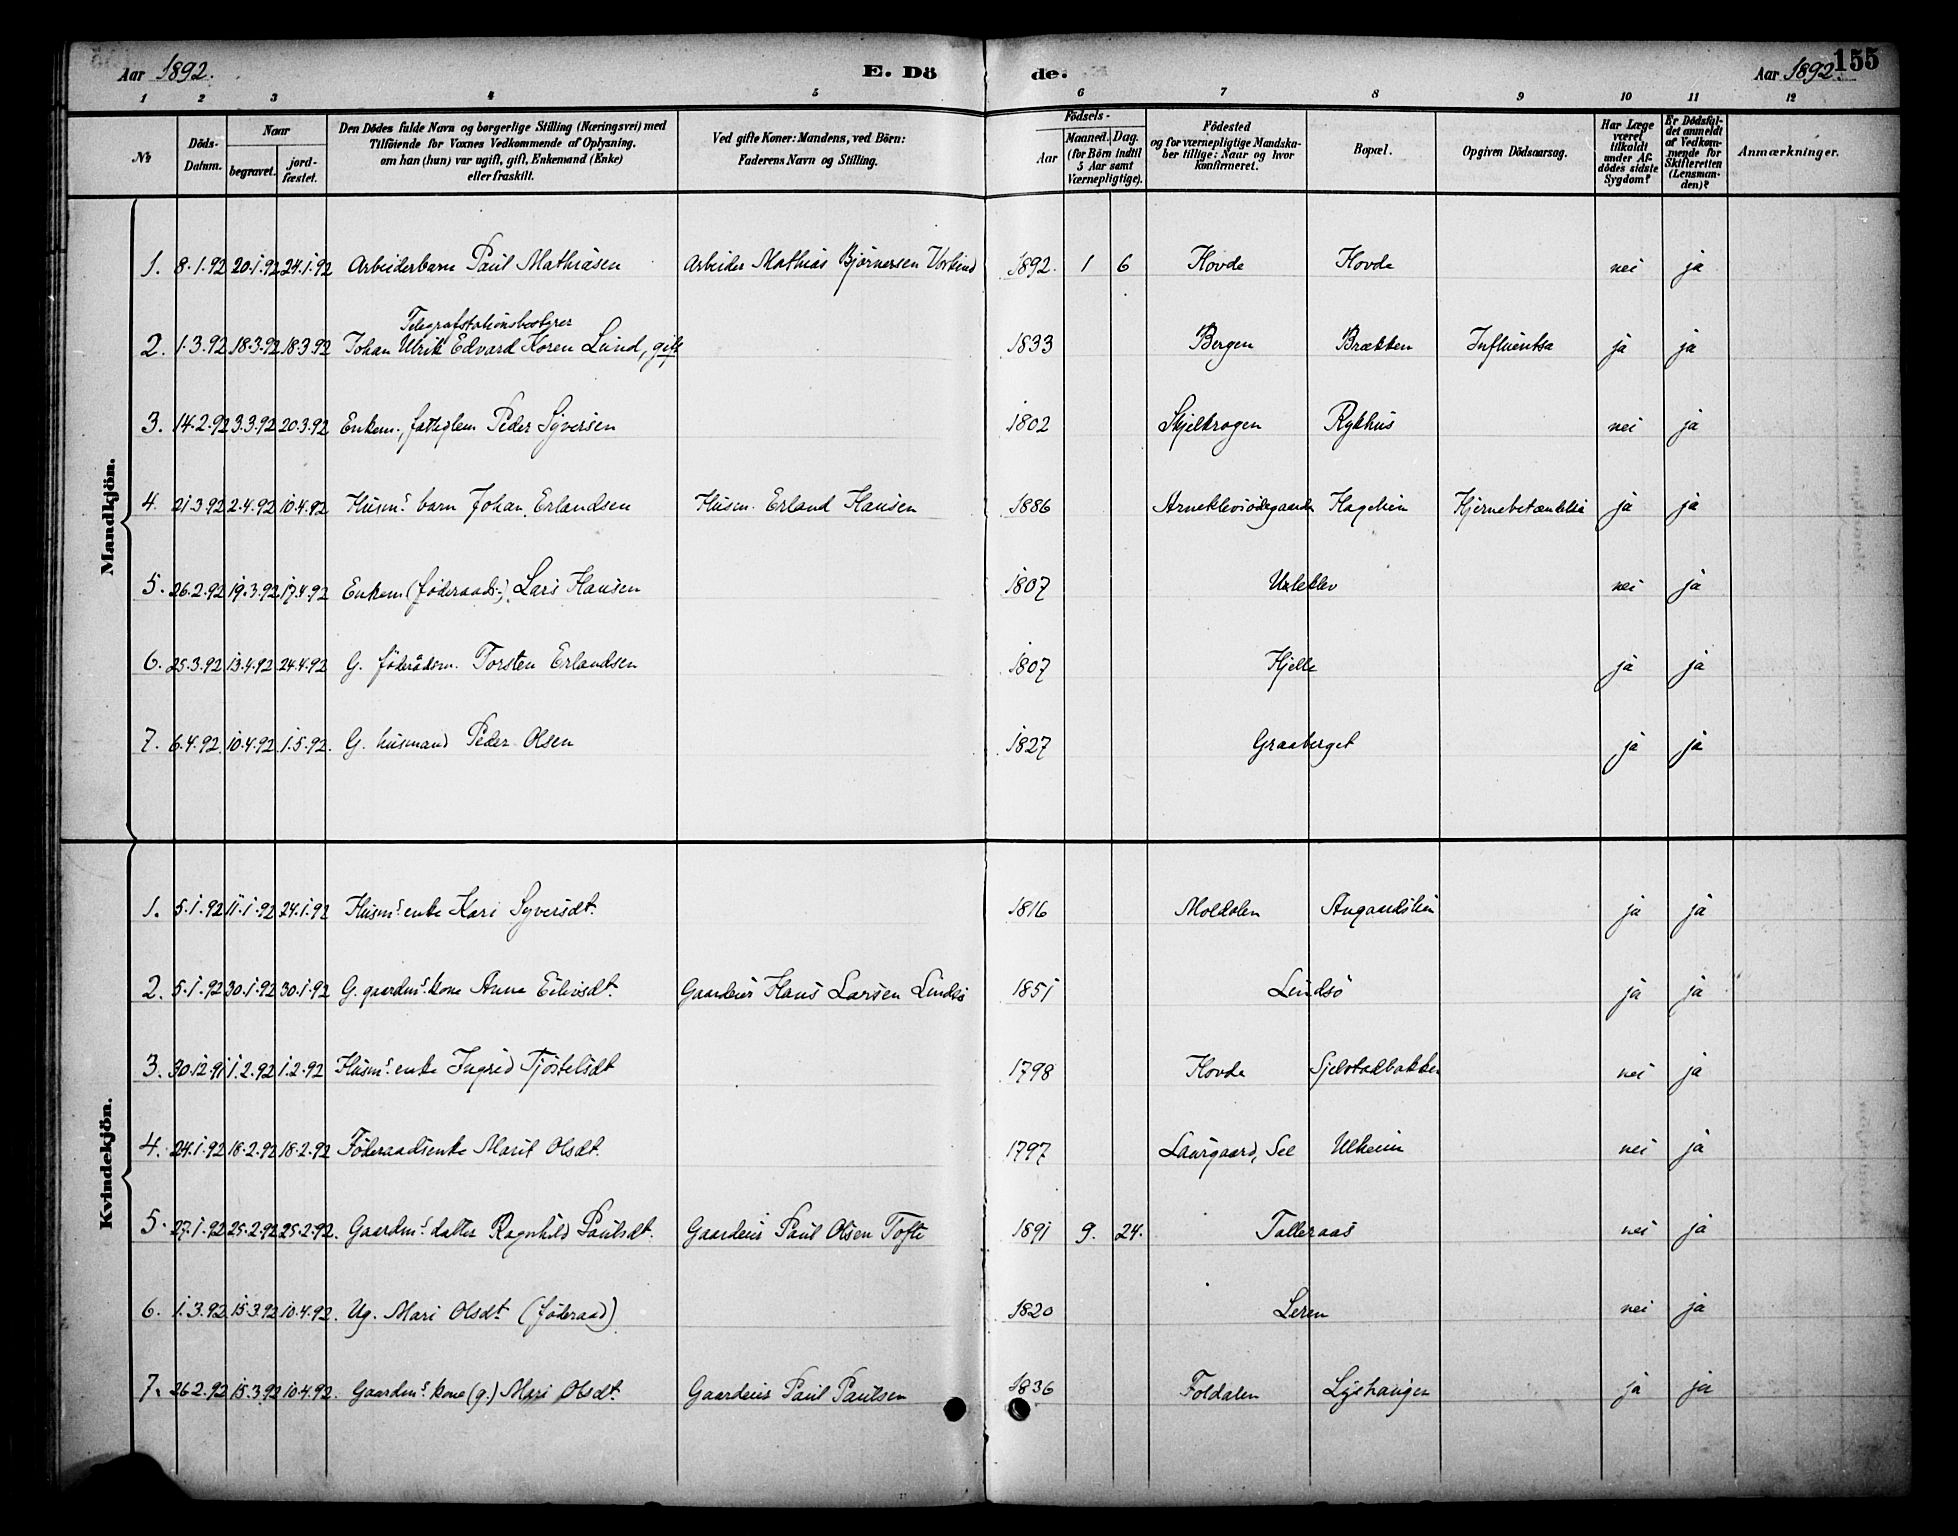 Aar 1892.
E. Döde.
Aar 1892. 155
1 2 3 4 5 6 7 8 9 10 11 12
No
Döds-Datum.
Naar
begravet.
jord-fæstet.
Den Dödes fulde Navn og borgerlige Stilling (Næringsvei) med
Tilföiende for Voxnes Vedkommende af Oplysning.
om han (hun) var ugift, gift, Enkemand (Enke)
eller fraskilt.
Ved gifte Koner: Mandens, ved Börn:
Faderens Navn og Stilling.
Födsels-
Aar
Maaned. Dag.
(for Börn indtil
5 Aar samt
Værnepligtige).
Födested
og for værnepligtige Mandska-
ber tillige: Naar og hvor
konfirmeret.
Bopæl.
Opgiven Dödsaarsag.
Har Læge
været
tilkaldt
under Af-
dödes sidste
Sygdom?
Er Dödsfal-
det anmeldt
af Vedkom-
mende for
Skifteretten
(Lensman-
den)?
Anmærkninger.
Mandkjön.
1. 8.1.92 20.1.92 24.1.92 Arbeiderbarn Paul Mathiasen Arbeider Mathias Bjørnersen 1892. 1 6 Hovde Hovde nei ja
Telegrafstationsbestyrer
2. 1.3.92 18.3.92 18.3.92 Johan Ulrik Edvard Koren Lund, gift 1833 Bergen Brækken Influentsa ja ja
3. 14.2.92 3.3.92 20.3.92 Enkem., fattiglem Peder Syversen 1802 Skjelkrogen Rykhus nei ja
4. 21.3.92 2.4.92 10.4.92 Husm.s barn Johan Erlandsen Husm. Erland Hansen 1886 Hagelien ja ja
5. 26.2.92 19.3.92 17.4.92 Enkem (föderaads-), Lars Hansen 1807 nei ja
6. 25.3.92 13.4.92 24.4.92 G. föderådsm. Torsten Erlandsen 1807 Hjelle ja ja
7. 6.4.92. 10.4.92 1.5.92. G. husmand Peder Olsen 1827 Graaberget ja ja
Kvindekjön.
1. 5.1.92 11.1.92 24.1.92 Husm.s enke Kari Syversdt. 1816 Moldalen Angaardslien ja ja
2. 5.1.92 30.1.92 30.1.92 G. gaardm.s kone Anne Eilivsdt. Gaardeier Hans Larsen Lindsö 1851 Lindsö ja ja
3. 30.12.91 1.2.92 1.2.92 Husm.s enke Ingrid Tjöstelsdt 1798 Hovde Sjelstadbakken nei ja
4. 24.1.92 18.2.92 18.2.92 Föderaadsenke Marit Olsdt. 1797 Laurgaard, Sel Ulheim nei ja
5. 27.1.92 25.2.92 25.2.92. Gaardm.s datter Ragnhild Paulsdt. Gaardeier Paul Olsen Tofte 1891 9. 24. Talleraas nei ja
6. 1.3.92. 15.3.92 10.4.92. Ug. Mari Olsdt (föderaad) 1820 Leren nei ja
7. 26.2.92 15.3.92 10.4.92. Gaardm.s kone (g.) Mari Olsdt. Gaardeier Paul Paulsen 1836 Foldalen Lyshaugen ja ja